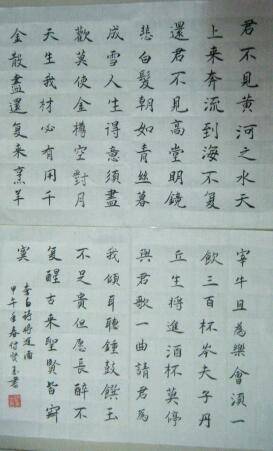 君不見黄河之水天
上来奔流到海不复
還君不見高堂明鏡
悲白髮朝如青絲暮
成雪人生得意須盡
歡莫使金樽空對月
天生我材必有用千
金散盡還复来烹羊
宰牛且為樂會須一
飲三百杯岑夫子丹
丘生將進酒杯莫停
與君歌一曲請君為
我傾耳聽鐘鼓饌玉
不足貴但愿長醉不
复醒古来聖賢皆寂
寞
李白詩將進酒
甲午年春付賢玉書